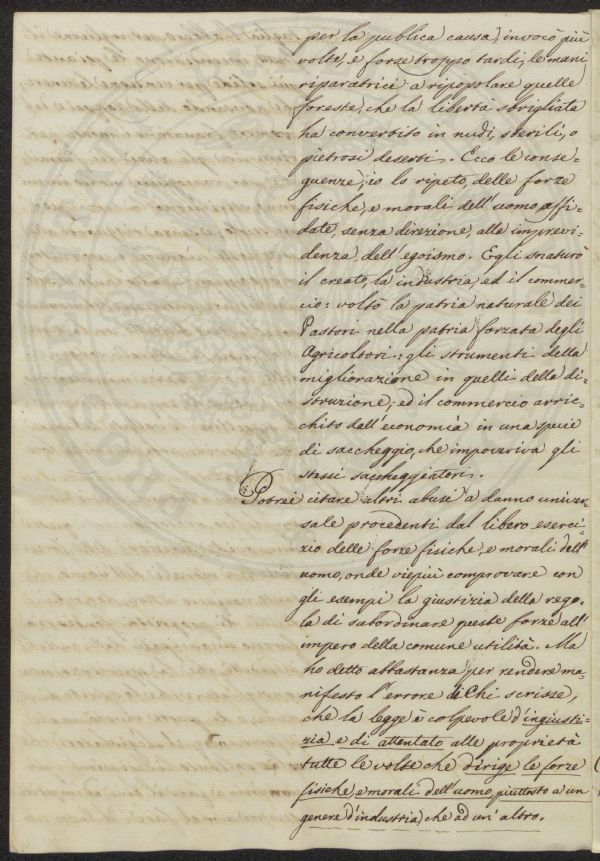 per la publica causa, invocò più
volte, e forze troppo tardi, le mani
riparatrici a ripopolare quelle
foreste, che la libertà sbrigliata
ha convertito in nudi, sterili, o
pietrosi deserti. Ecco le conse-
guenze, io lo ripeto, delle forze
fisiche, e morali dell'uomo affi-
date, senza direzione, alle imprevi-
denza dell'egoismo. Egli snaturò
il creato, la industria, ed il commer-
cio: voltò la patria naturale dei
Pastori nella patria forzata degli
Agricoltori: gli strumenti della
migliorazione in quelli della di-
struzione; ed il commercio arric-
chito dall'economia in una specie
di saccheggio, che impoveriva gli
stessi saccheggiatori.
Potrei citare altri abusi a danno univer-
sale procedenti dal libero eserci-
zio delle forze fisiche, e morali dell'
uomo, onde viepiù comprovare con
gli esempi la giustizia della rego-
la di subordinare queste forze all'
impero della comune utilità. Ma
ho detto abbastanza per rendere ma-
nifesto l'errore di Chi scrisse,
che la legge è colpevole d'ingiusti-
zia e di attentato alle proprietà
tutte le volte che dirige le forze
fisiche, e morali dell'uomo, piuttosto a un
genere d'industria, che ad un' altro.